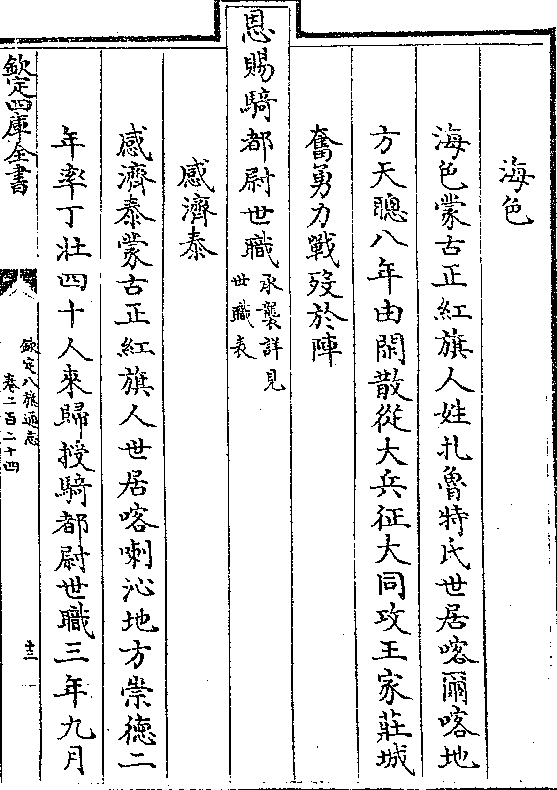 海色
海色蒙古正紅旗人姓扎魯特氏世居喀爾喀地
方天聰八年由閒散從大兵征大同攻王家莊城
奮勇力戰殁於陣
恩賜騎都尉世職承襲詳見
世職表
感濟泰
感濟泰蒙古正紅旗人世居喀喇沁地方崇德二
年率丁壯四十人來歸授騎都尉世職三年九月
欽定四庫全書
欽定八旗通志
卷二百二十四